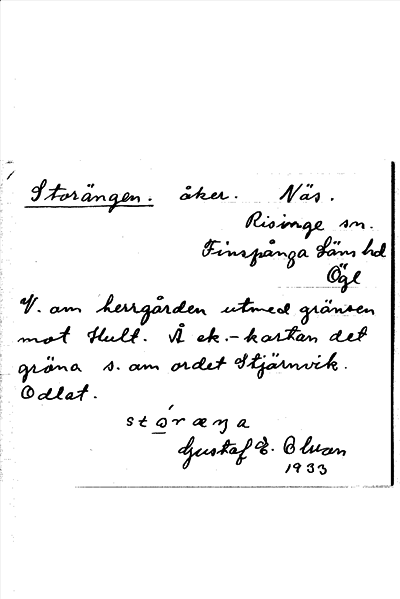 Storängen. åker. Näs.
Risinge sn.
Finspånga läns hd
Ögl
V. om herrgården utmed gränsen
mot Hult. Å ek.-kartan det
gröna s. om ordet Stjärnvik.
Odlat.
Gustaf E.
1933